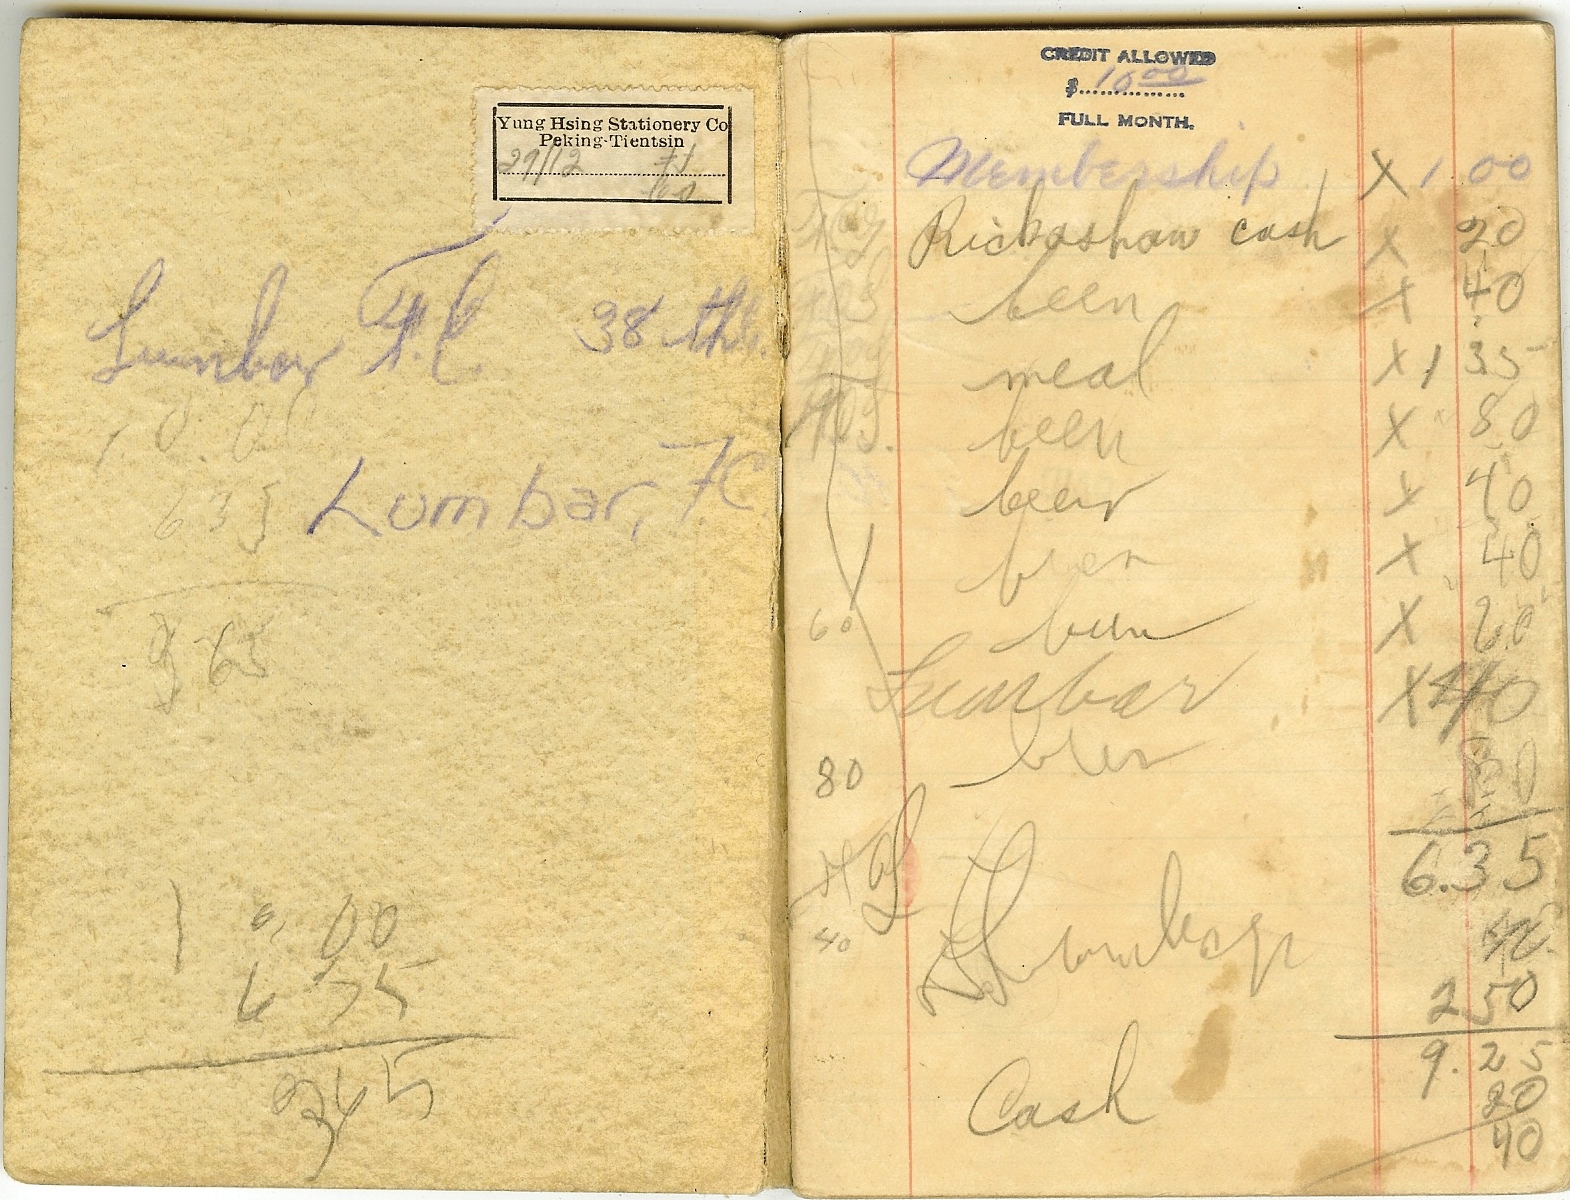 Yung Hsing Stationery Co
Peking-Tientsin
29/12
Lumbar F.C. 38 th.
10.00
Lumbar, FC
635
365
10.00
6 35
345
CREDIT ALLOWED
$ 10 00
FULL MONTH.
Membership X 1 00
Rickashaw cash X 20
beer X 40
meal X 1 35
beer X 80
beer X 40
beer X 40
60 beer X 20
Lumbar X 40
80 beer
6.35
40
2 50
9.25
Cash 20
40